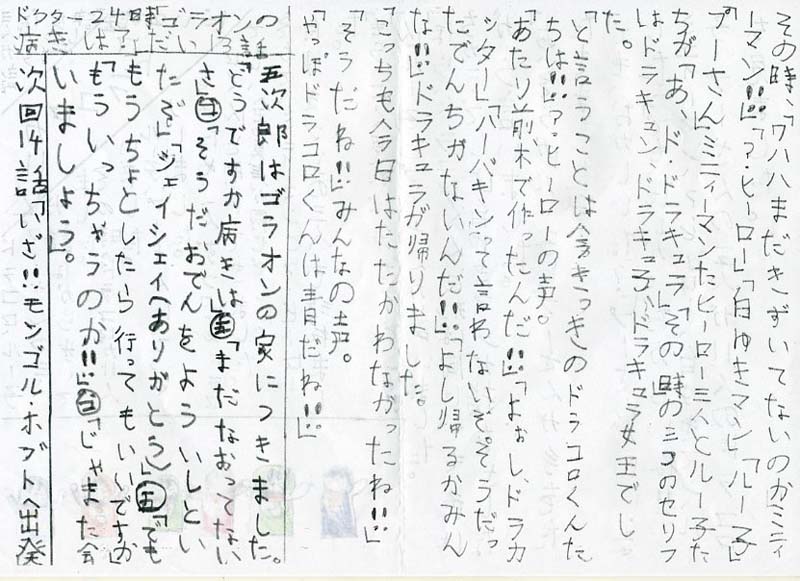 その時、「ワハハまだきずいてないのか」ミティ
ーマン!!」「?・ヒーロー」「白ゆきマン」ピ「ルー子」
「プーさん」ミニティーマンたヒーロー三人とルー子た
ちが「あ、ド・ドラキュラ」その時の三つのセリフ
はドラキュン、ドラキュ子、ドラキュラ女王でし
た。
「と言うことは今さっきのドラコロくんた
ちは!!」?・ヒーローの声。
「あたり前木で作ったんだ!!」「よぉし、ドラカ
ッター」「ハーバキンって言わないぞ。そうだっ
たでんちがないんだ!!」「よし帰るかみん
な!!」ドラキュラが帰りました。
「こっちも今日はたたかわなかったね!!」
「そうだね!!」みんなの声。
「やっぽドラコロくんは青だね!!」
五次郎はゴラオンの家につきました。
「どうですか病きは」五「まだなおってない
さ」ゴ「そうだおでんをよういしとい
たぞ」「シェイシェイ(ありがとう)」五「でも
もうちょとしたら行ってもいいですか」
「もういっちゃうのか!!」ゴ「じゃまた会
いましょう」。
次回14話「いざ!!モンゴル・ホブトへ出発